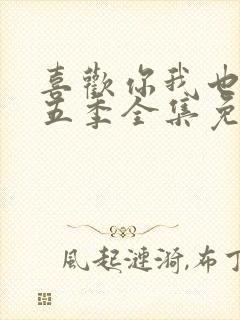 喜歡你我也
五季全集免
風起漣漪,布丁